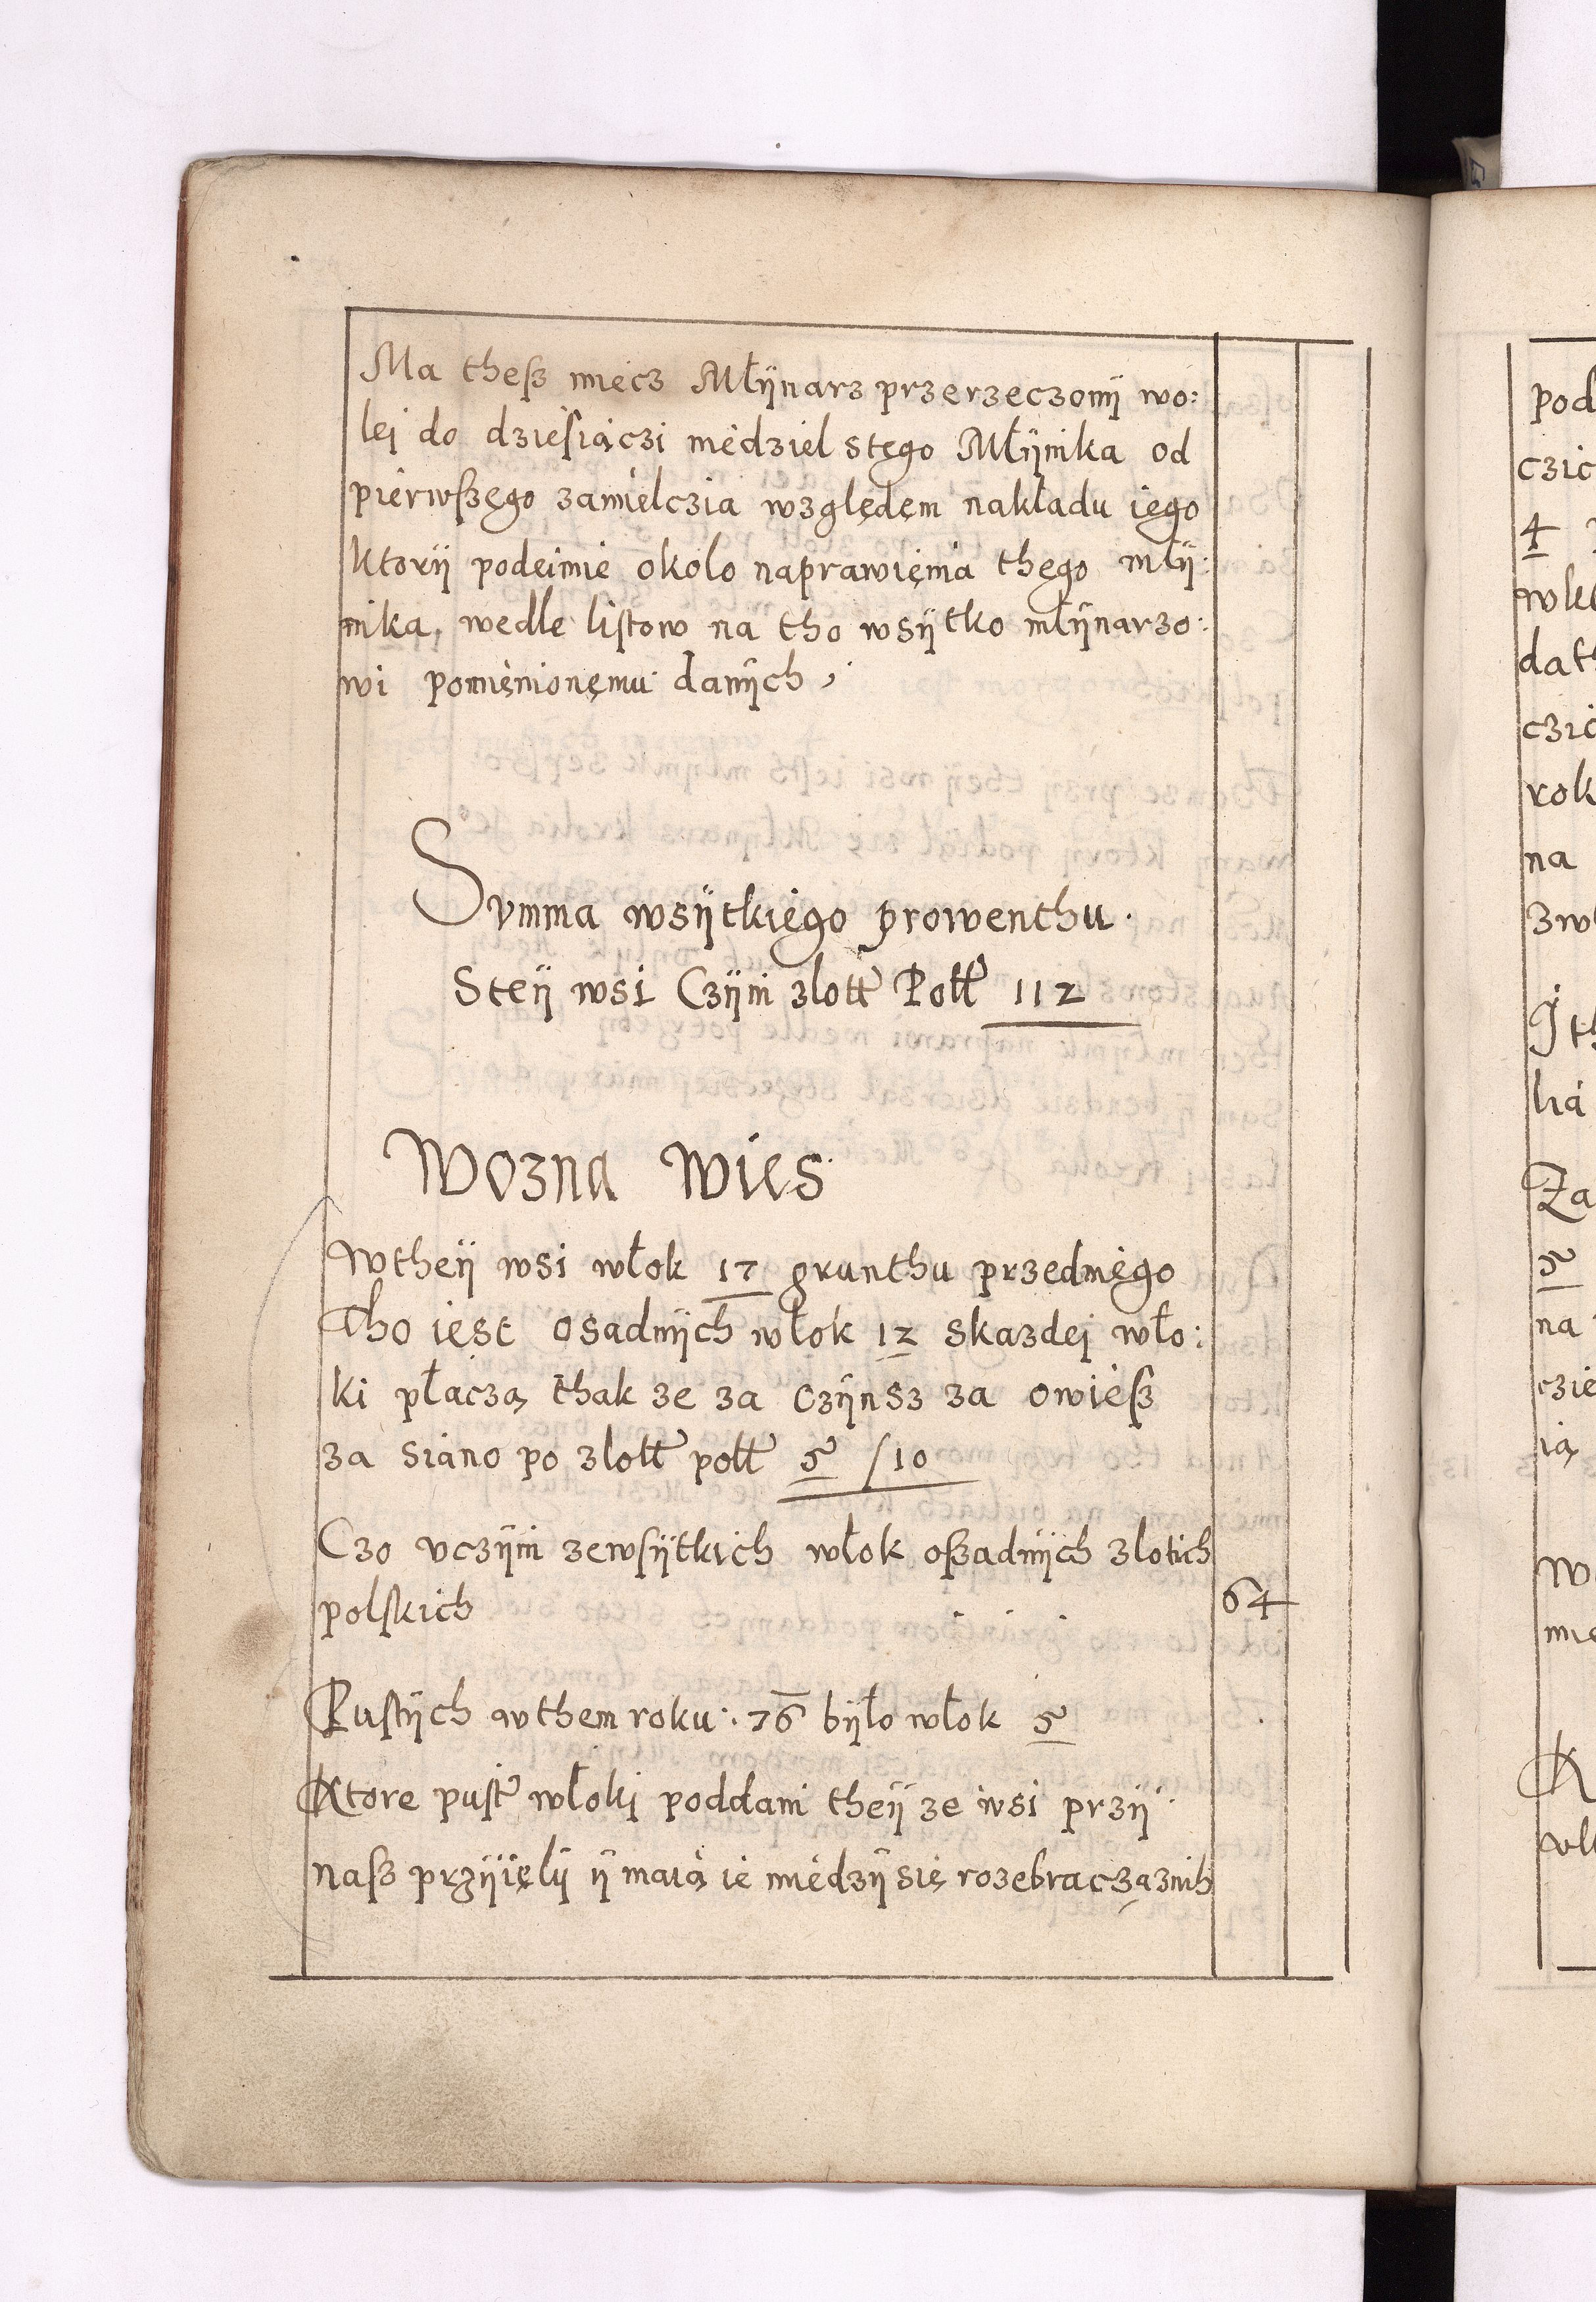 Ma theß miecz Młÿnarz przerzeczonÿ wo:
lei do dzieſiączi niedziel stego Młÿnika od
pierwſzego zamielczia względem nakładu iego
Ktorÿ podeimie okolo naprawienia thego mlÿ:
nika, wedle liſtow na tho wsÿtko młÿnarzo:
wi pomienionemu danÿch,
Summa wsÿtkiego prowenthu.
Steÿ wsi Czÿni zlott Poll 112
Wozna Wies
Wtheÿ wsi włok 17 grunthu przedniego
Tho iest osadnÿch włok 12 skazdei wło:
ki płaczą thak ze za czÿnsz za owieß
za siano po zlott poll 5 /10
Czo uczÿni zewſÿtkich włok oßadnÿch zlotich
polſkich
64
Puſtÿch wthem roku. 76 bÿło włok 5
Ktore puſt włoki poddani theÿ ze wsi przÿ
naß przÿięlÿ ÿ maią ie miedzÿ się rozebracz a znih
pod
4
dath
rok
na
zw
lia
Za
5
na
ią
W